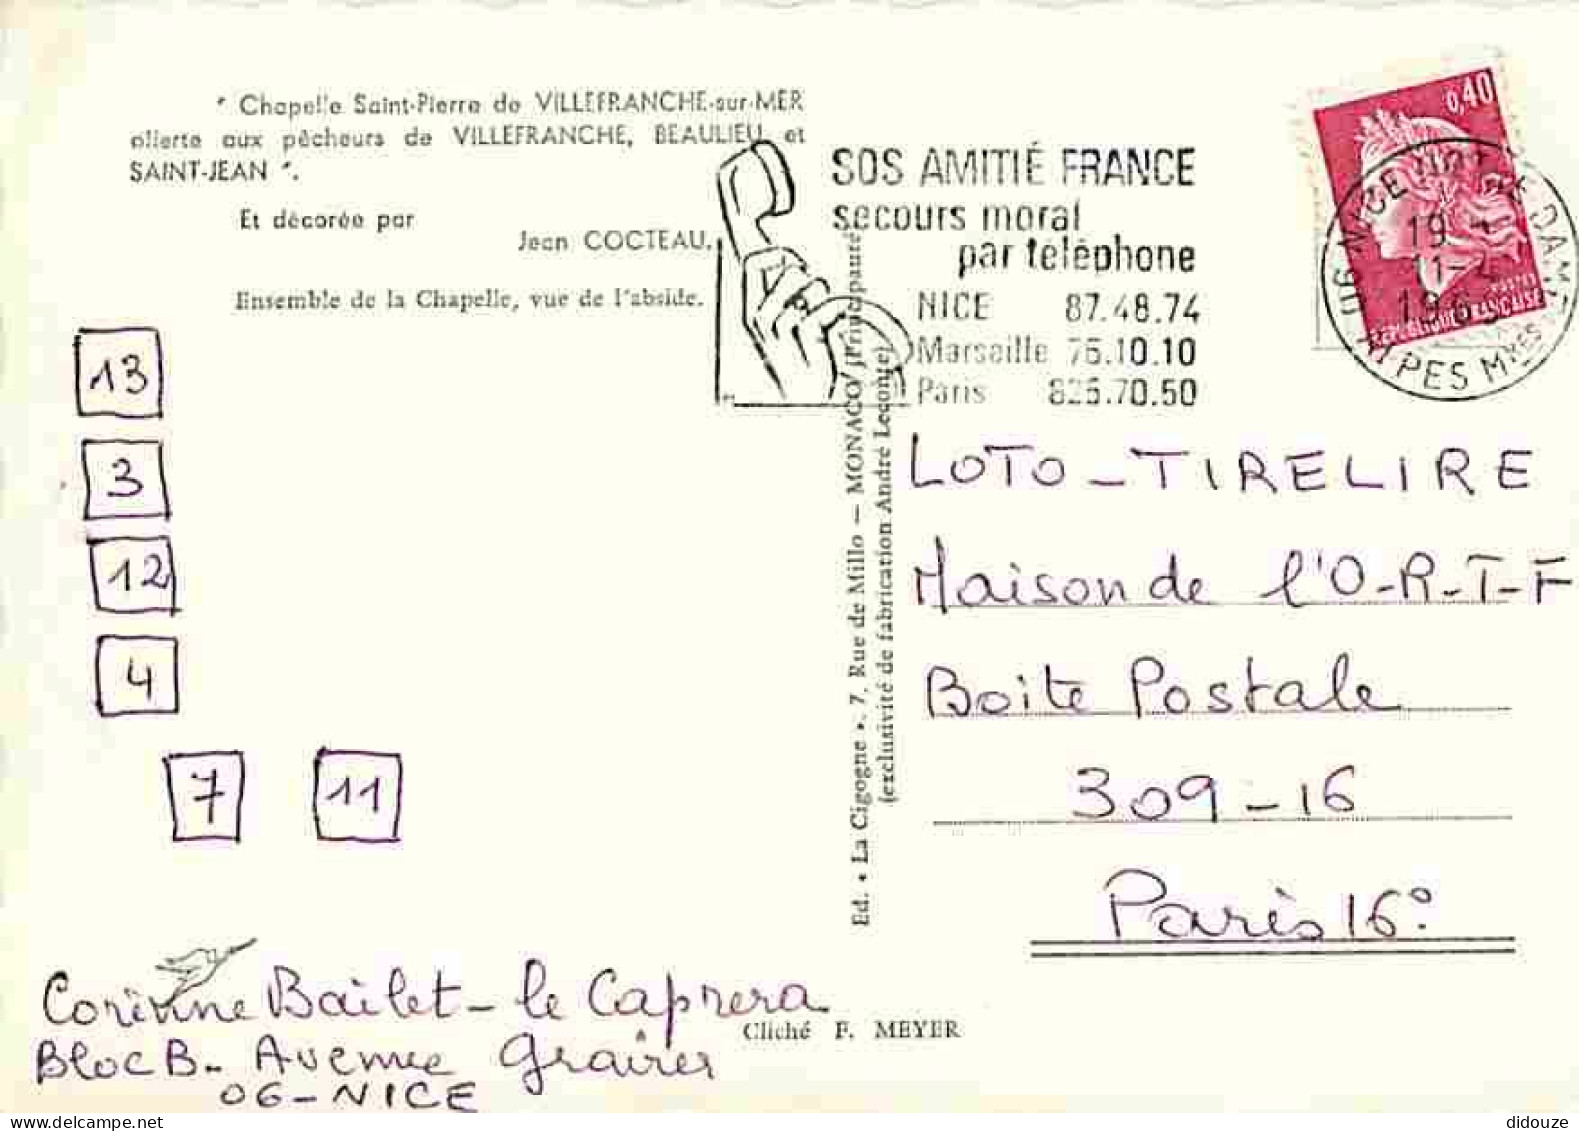 " Chapelle Saint-Pierre de VILLEFRANCHE-sur-MER
offerte aux pêcheurs de VILLEFRANCHE, BEAULIEU et
SAINT-JEAN ".
Et décorée par
Jean COCTEAU.
Ensemble de la Chapelle, vue de l'abside.
SOS AMITIÉ FRANCE
secours moral
par téléphone
NICE 87.48.74
Marseille 76.10.10
Paris 825.70.50
0,40
POSTES
REPUBLIQUE FRANÇAISE
06 NICE DAME
19 H
11-4
1969
ALPES MMES
13
3
12
4
7 11
Ed. « La Cigogne ». 7, Rue de Millo — MONACO (Principauté)
(exclusivité de fabrication André Leconte)
LOTO - TIRELIRE
Maison de l'O-R-T-F
Boite Postale
309-16
Paris 16°.
Corinne Bailet - le Caprera
Bloc B - Avenue
06 - NICE
Cliché F. MEYER
didouze